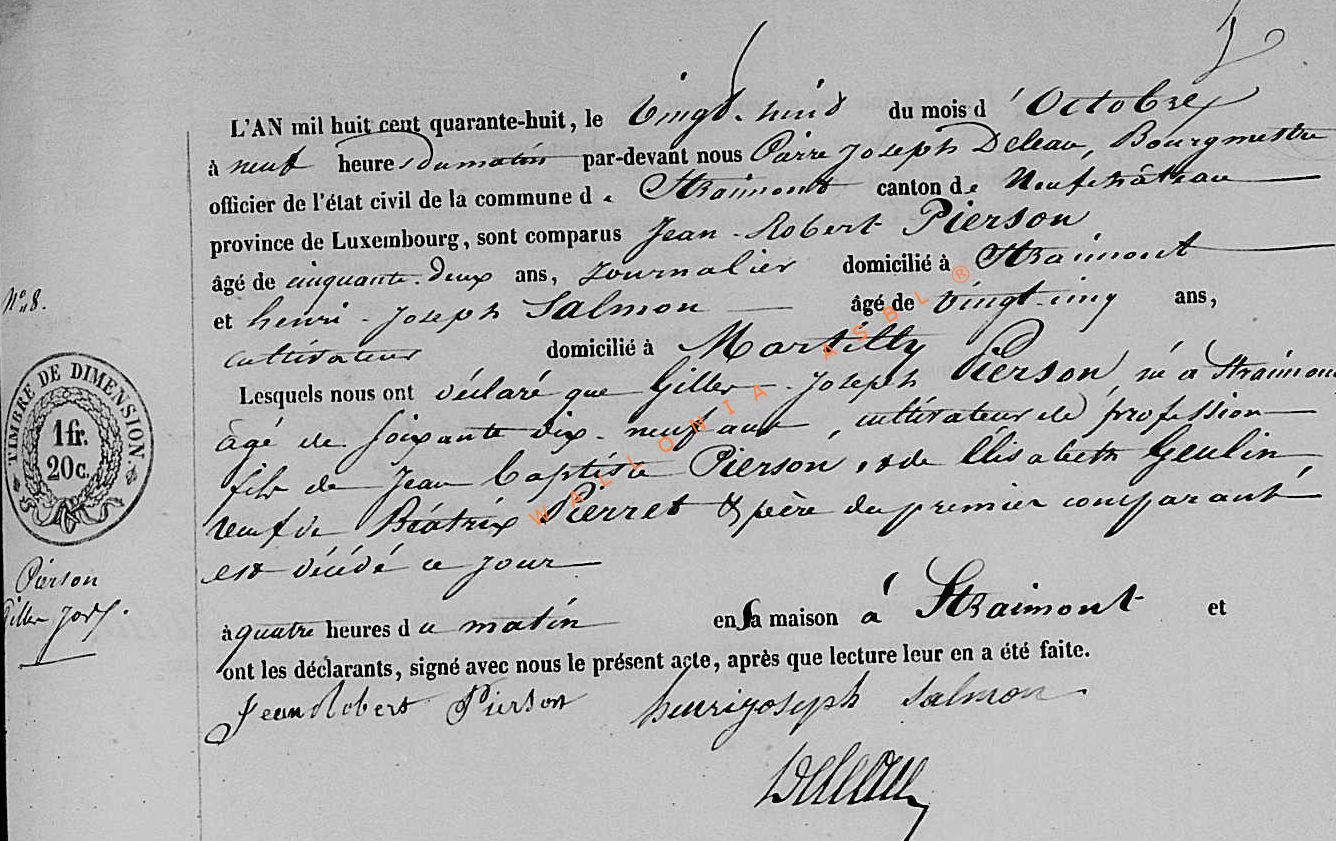 L'AN mil huit cent quarante-huit, le vingt-huit du mois d'Octobre
à neuf heures du matin par-devant nous Pierre Joseph Deleau, Bourgmestre
officier de l'état civil de la commune de Straimont canton de Neufchâteau
province de Luxembourg, sont comparus Jean-Robert Pierson
âgé de cinquante-deux ans, Journalier domicilié à Straimont
N° 8.
et henri-Joseph Salmon âgé de vingt-cinq ans,
cultivateur domicilié à Martilly
Lesquels nous ont déclaré que Gilles-Joseph Pierson, né à Straimont
âgé de soixante dix-neuf ans, cultivateur de profession
fils de Jean Baptiste Pierson, et de Elisabeth Geulin
veuf de Béatrix Pierret & père du premier comparant
est décédé ce jour
à quatre heures du matin en sa maison à Straimont et
ont les déclarants, signé avec nous le présent acte, après que lecture leur en a été faite.
Jean Robert Pierson henri joseph Salmon
Deleau
TIMBRE DE DIMENSION
1 fr.
20 c.
Pierson
Gilles Josh.
WALLONIA ASBL ®